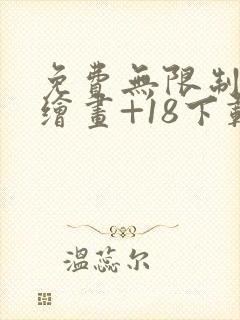 免費無限制
繪畫+18下載
溫蕊尔